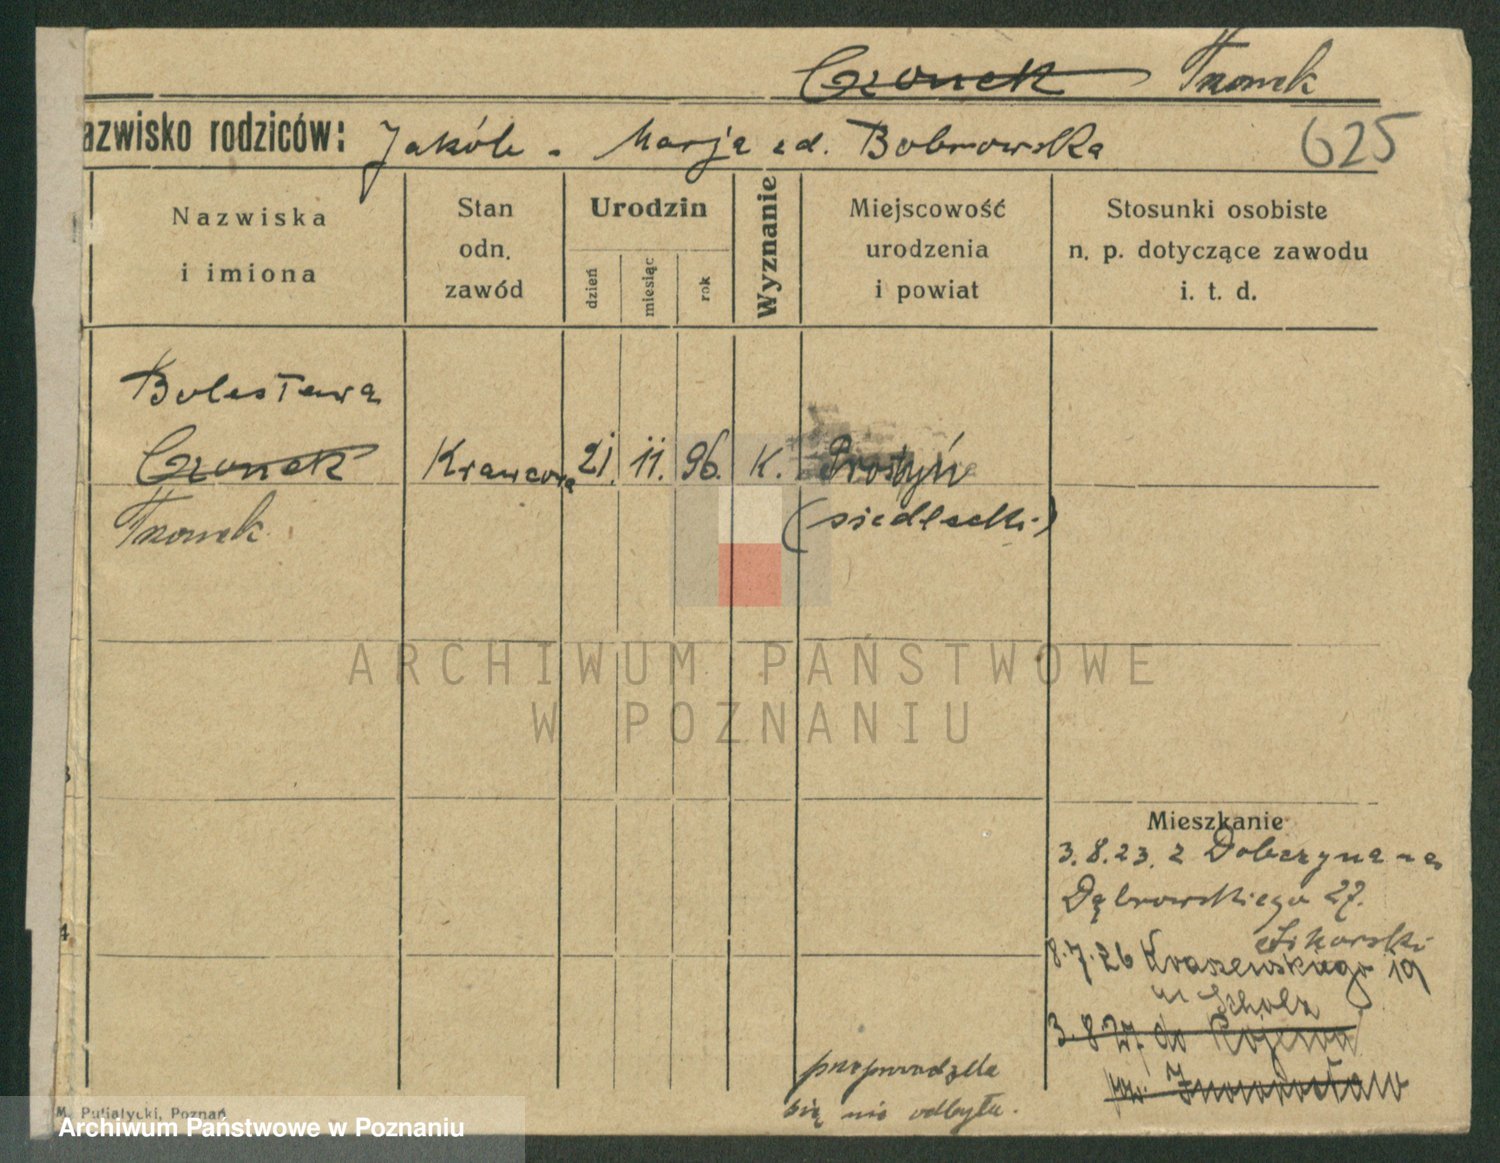 Czonek Tzonek
azwisko rodziców: Jakób - Marja zd. Bobrowska 625
Nazwiska i imiona
Stan odn. zawód
Urodzin
dzień
miesiąc
rok
Wyznanie
Miejscowość urodzenia i powiat
Stosunki osobiste n. p. dotyczące zawodu i. t. d.
Bolesława
Czonek Krawcowa 21. 11. 96. K. Prostyń
Tzonek (siedlecki)
ARCHIWUM PAŃSTWOWE
W POZNANIU
3
4
Mieszkanie
3.8.23. z Dobczyna na
Dąbrowskiego 27.
Sikorski
8.7.26 Kraszewskiego 19
u Scholz
3.8.27. do Kojewa
pw. Inowrocław
przeprowadzka
się nie odbyła.
M. Putiatycki, Poznań
Archiwum Państwowe w Poznaniu